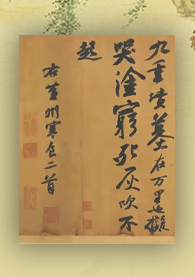 九重墳墓在万里也擬
哭塗窮死灰吹不
起
右黃州寒食二首